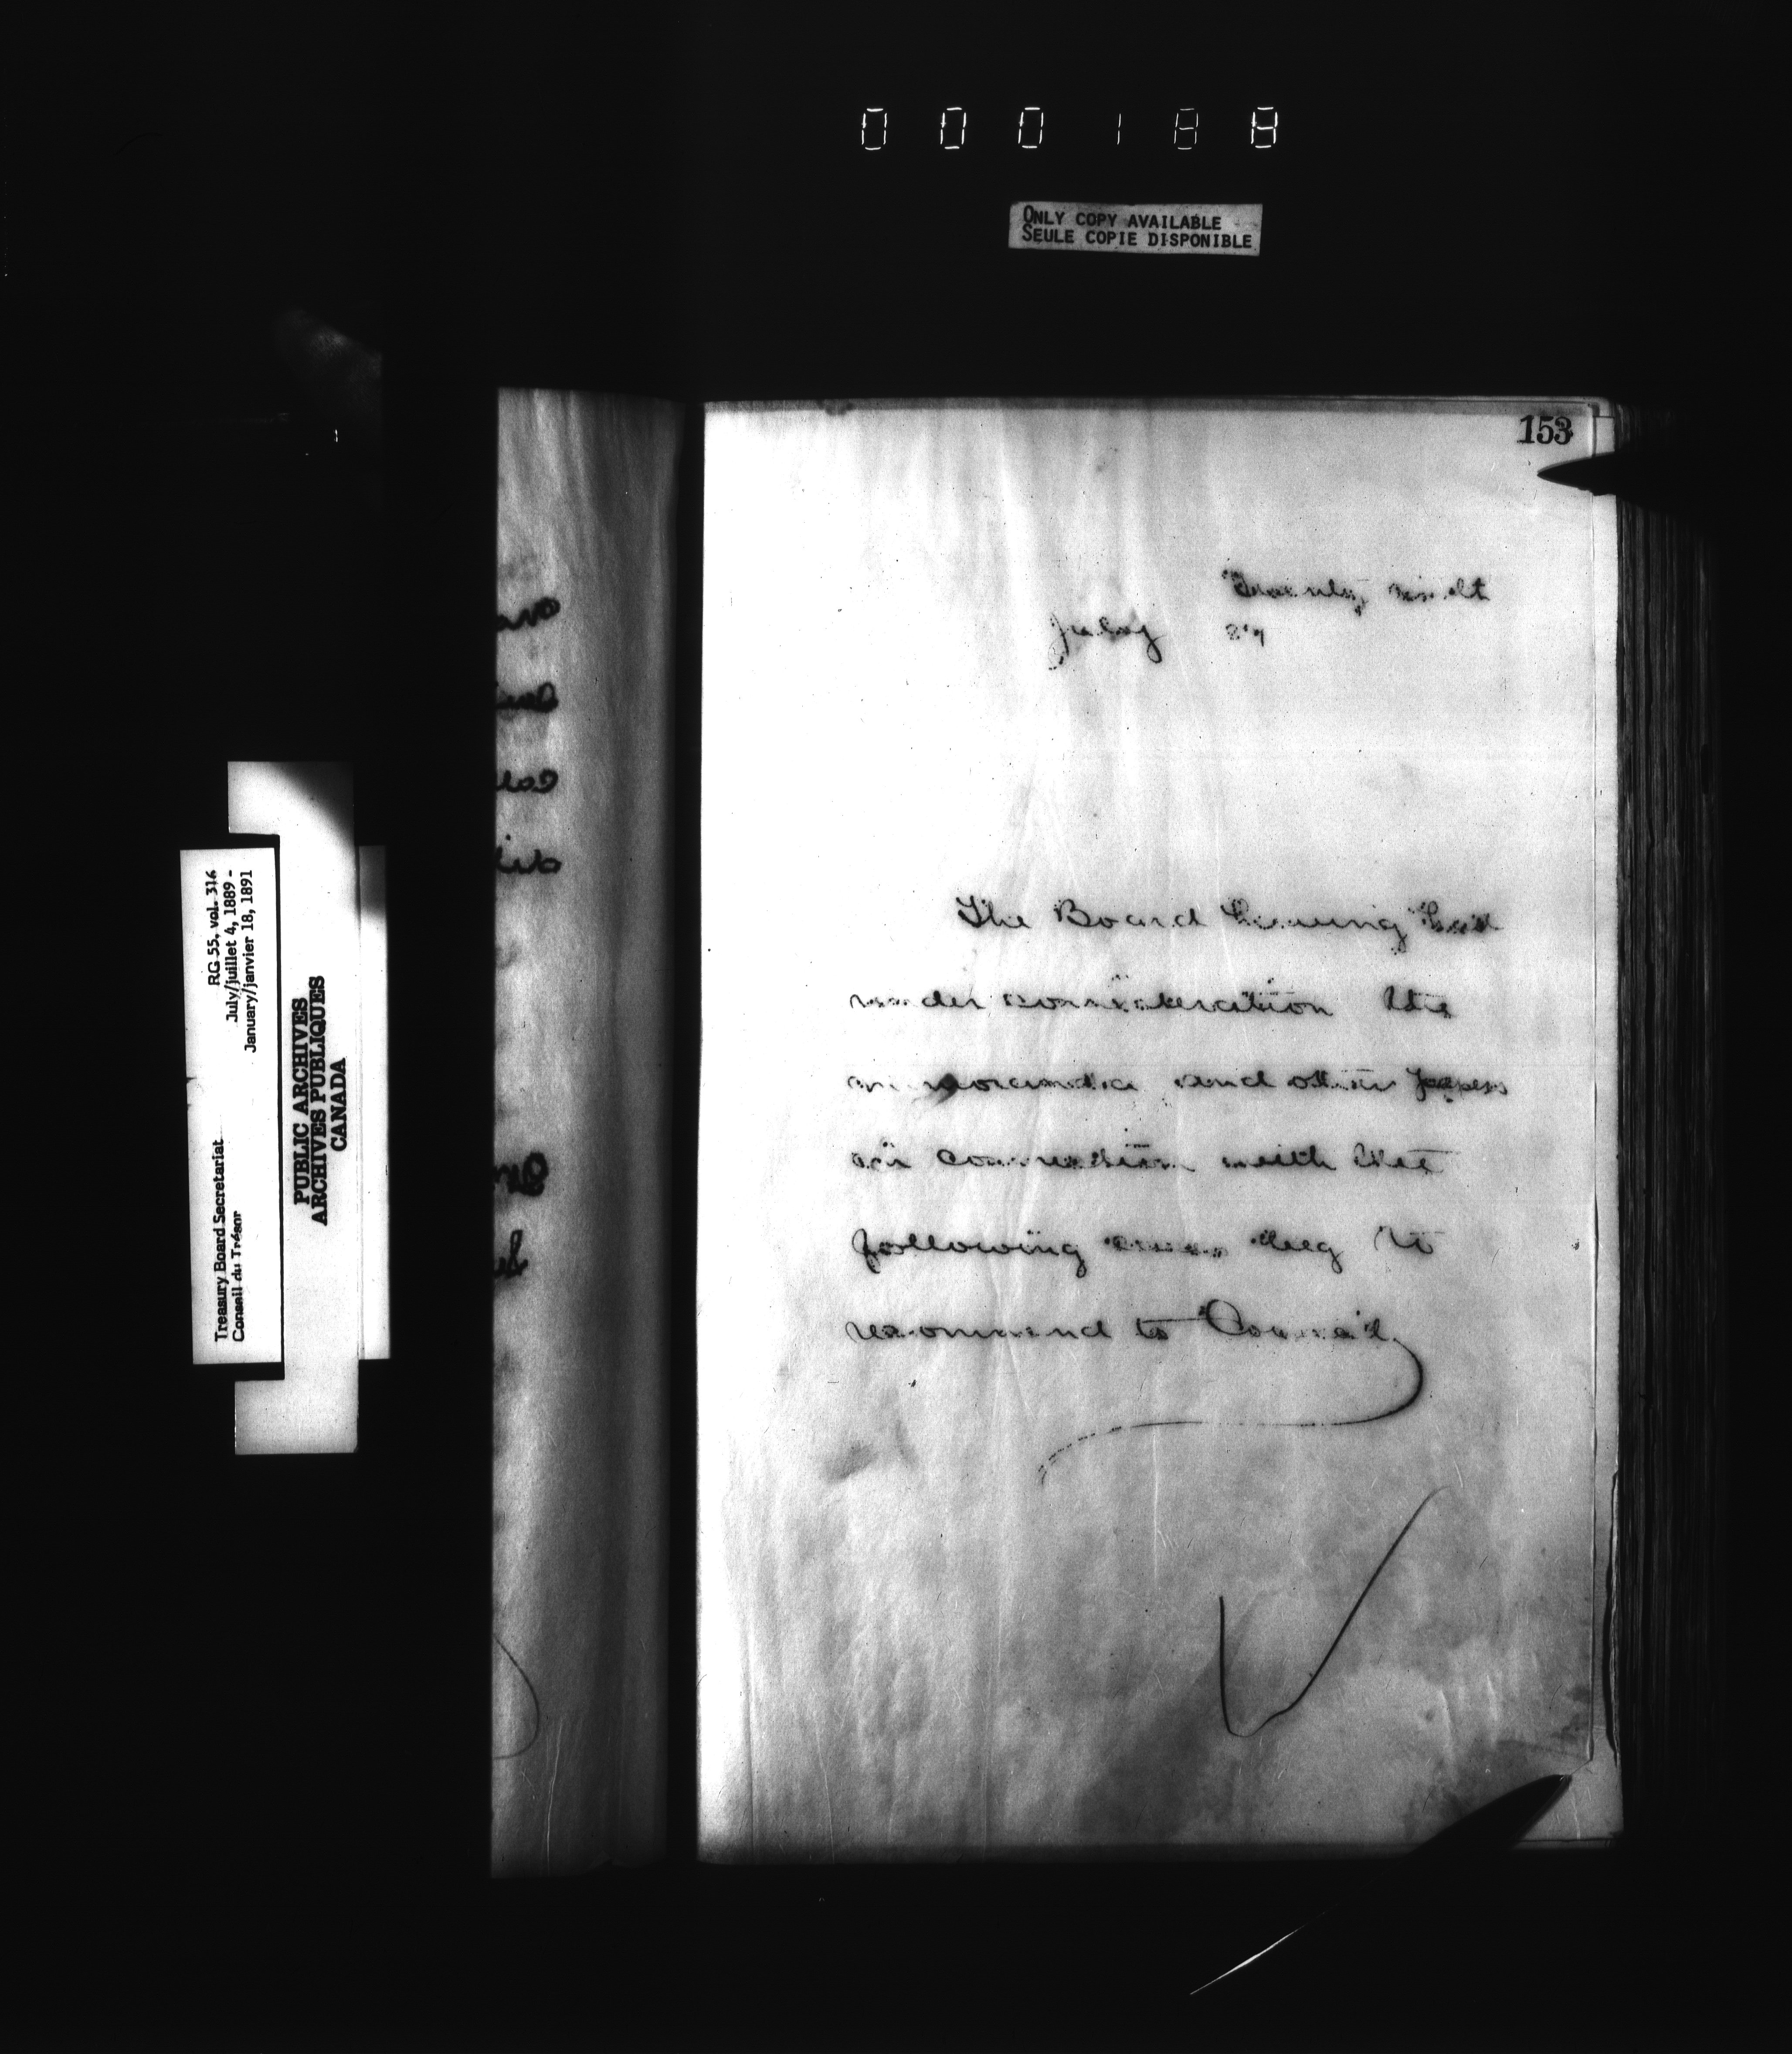 000188
ONLY COPY AVAILABLE
SEULE COPIE DISPONIBLE
153
Twenty
July 89
The Board having had
under consideration the
memoranda and other papers
in connection with the
following cases beg to
recommend to Council
RG 55, vol. 316
July/juillet 4, 1889 -
January/janvier 18, 1891
Treasury Board Secretariat
Conseil du Trésor
PUBLIC ARCHIVES
ARCHIVES PUBLIQUES
CANADA